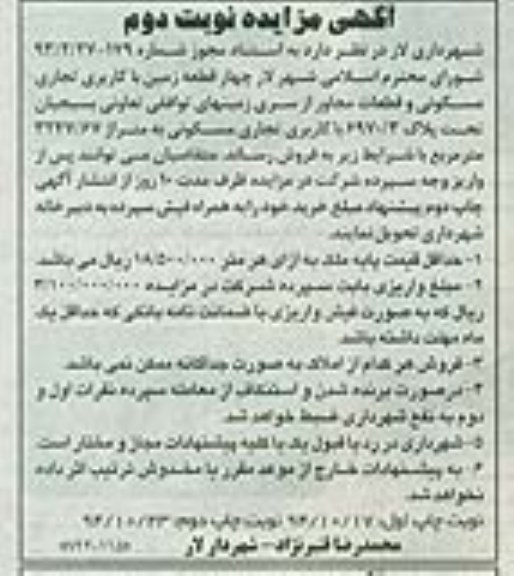 آگهی مزایده نوبت دوم
شهرداری لار در نظر دارد به استناد مجوز شماره ۱۷۹-۹۳/۲/۲۷
شورای محترم اسلامی شهر لار چهار قطعه زمین با کاربری تجاری
مسکونی و قطعات مجاور از سری زمینهای توافقی تعاونی بسیجیان
تحت پلاک ۶۹۷۰/۳ با کاربری تجاری مسکونی به متراژ ۳۲۴۷/۶۷
مترمربع با شرایط زیر به فروش رساند. متقاضیان می توانند پس از
واریز وجه سپرده شرکت در مزایده ظرف مدت ۱۰ روز از انتشار آگهی
چاپ دوم پیشنهاد مبلغ خرید خود را به همراه فیش سپرده به دبیرخانه
شهرداری تحویل نمایند.
۱- حداقل قیمت پایه ملک به ازای هر متر ۱۸/۵۰۰/۰۰۰ ریال می باشد.
۲- مبلغ واریزی بابت سپرده شرکت در مزایده ۳/۱۰۰/۰۰۰/۰۰۰
ریال که به صورت فیش واریزی یا ضمانت نامه بانکی که حداقل یک
ماه مهلت داشته باشد.
۳- فروش هر کدام از املاک به صورت جداگانه ممکن نمی باشد.
۴- درصورت برنده شدن و استنکاف از معامله سپرده نفرات اول و
دوم به نفع شهرداری ضبط خواهد شد.
۵- شهرداری در رد یا قبول یک یا کلیه پیشنهادات مجاز و مختار است.
۶- به پیشنهادات خارج از موعد مقرر یا مخدوش ترتیب اثر داده
نخواهد شد.
نوبت چاپ اول: ۹۴/۱۰/۱۷ نوبت چاپ دوم: ۹۴/۱۰/۲۳
محمدرضا قنبرنژاد - شهردار لار